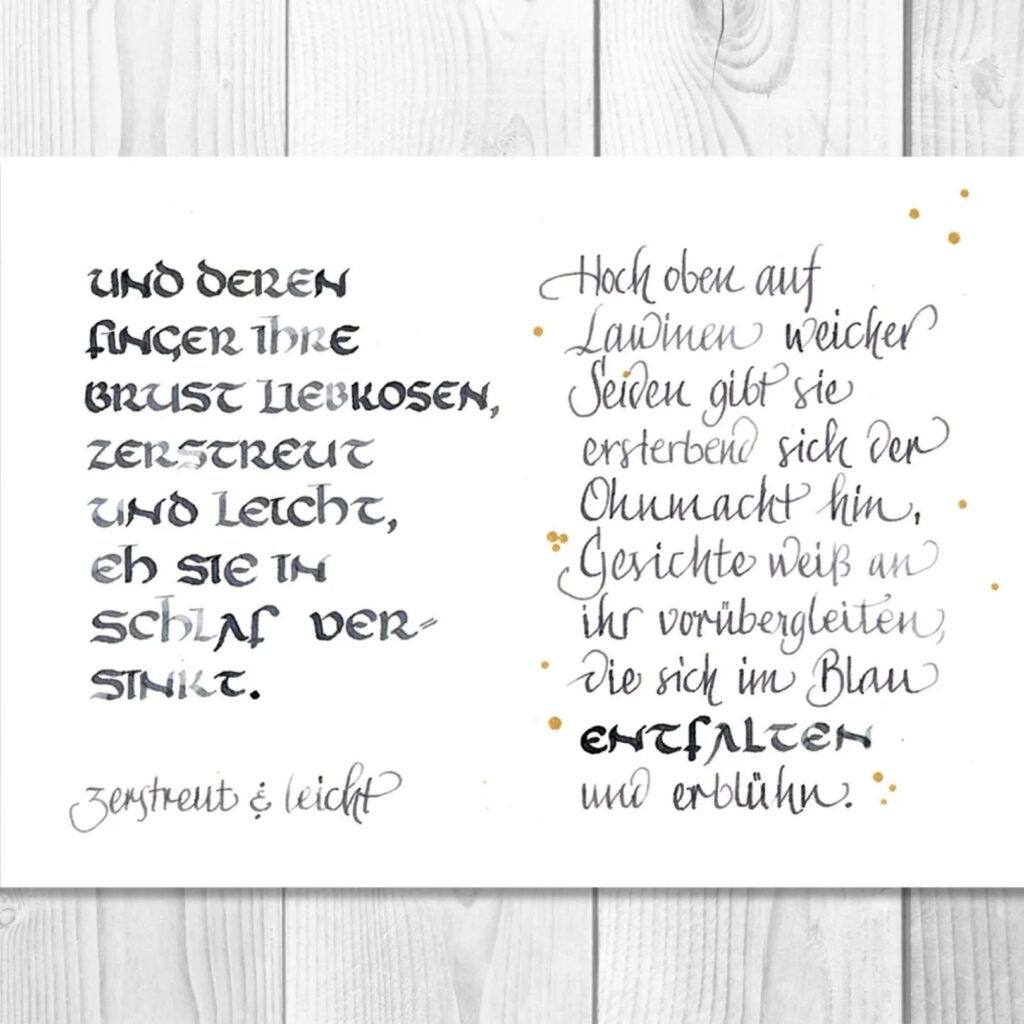 UND DEREN
FINGER IHRE
BRUST LIEBKOSEN,
ZERSTREUT
UND LEICHT,
EH SIE IN
SCHLAF VER=
SINKT.
zerstreut & leicht
Hoch oben auf
Lawinen weicher
Seiden gibt sie
ersterbend sich der
Ohnmacht hin,
Gesichte weiß an
ihr vorübergleiten,
die sich im Blau
ENTFALTEN
und erblühn.